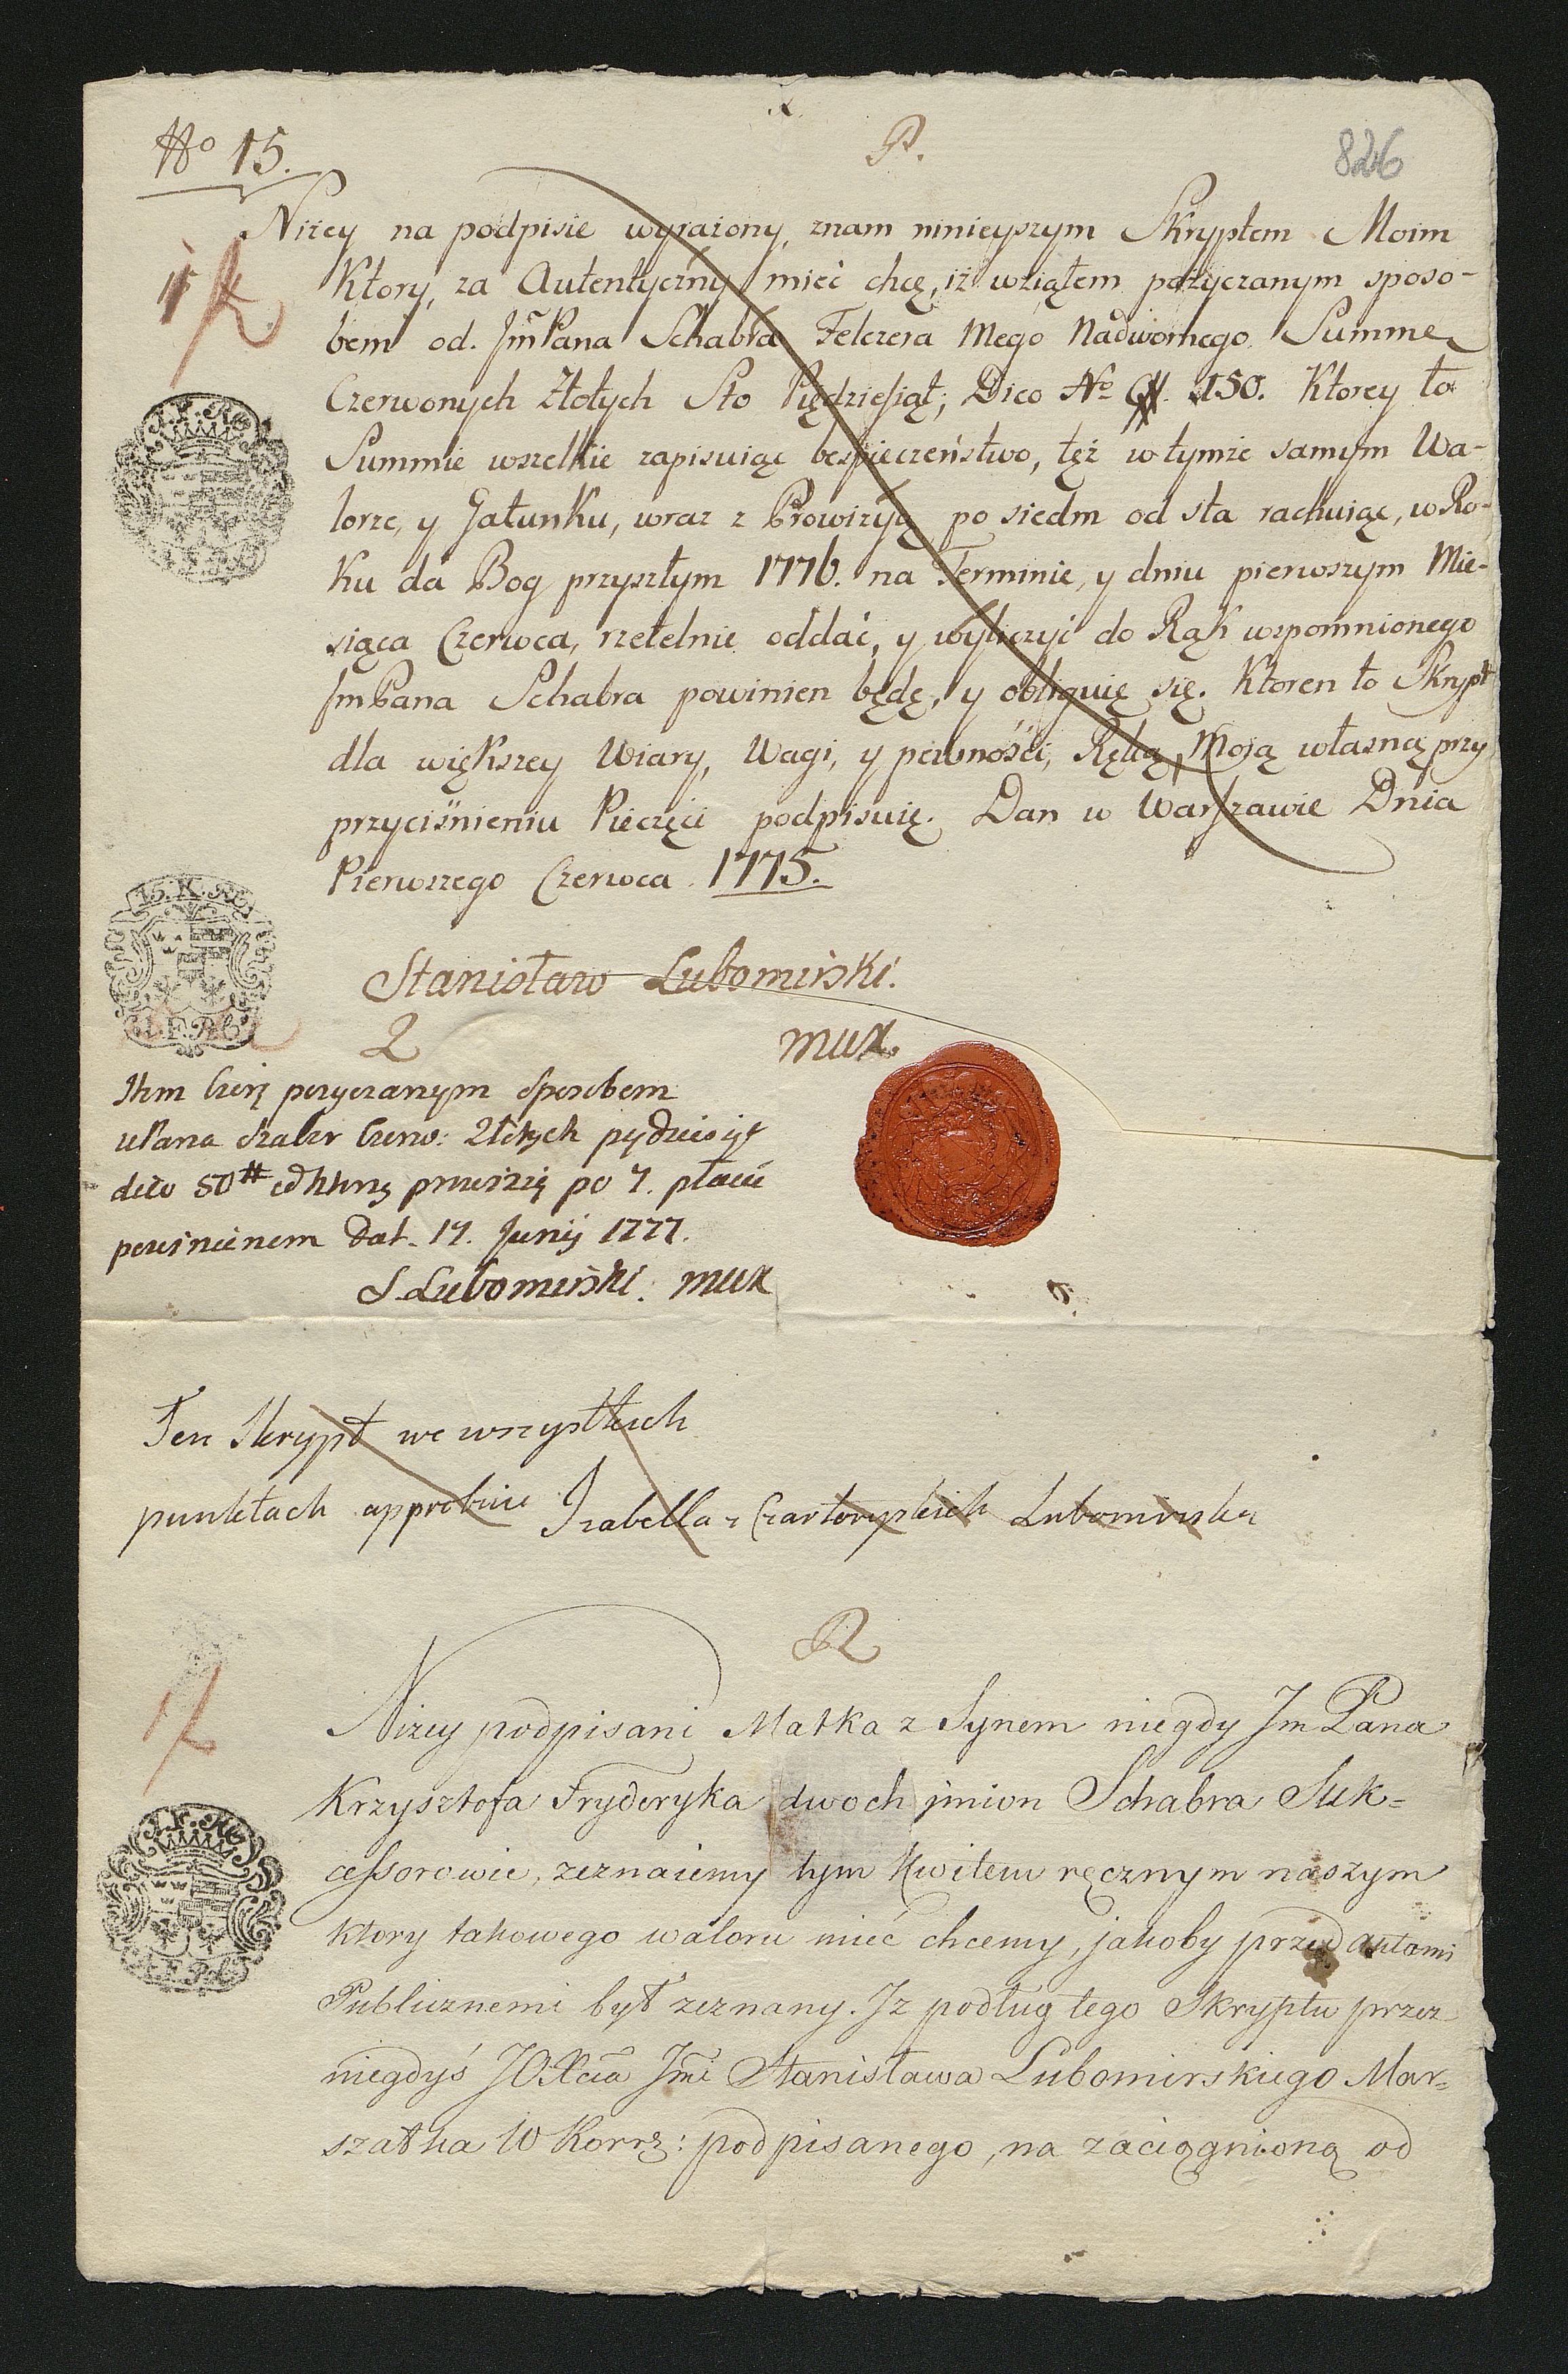 No 15.
P.
826
Niżey na podpisie wyrażony, znam ninieyszym Skryptem Moim
Ktory, za Autentyczny mieć chcę, iż wziąłem pożyczanym sposo-
bem od. Jm̃Pana Schabra Felczera Mego Nadwornego. Summę
Czerwonych Złotych Sto Pięćdziesiąt; Dico No 150. Ktorey to
Summie wszelkie zapisuiąc bespieczeństwo, tęż w tymże samym Wa-
lorze, y Gatunku, wraz z Prowizyą po siedm od sta rachuiąc, w Ro-
ku da Bog przyszłym 1776. na Terminie, y dniu pierwszym Mie-
siąca Czerwca, rzetelnie oddać, y wyliczyć do Rąk wspomnionego
JmPana Schabra powinien będę, y obliguię się. Ktoren to Skrypt
dla większey Wiary, Wagi, y pewności, Ręką Moją własną przy
przyciśnieniu Pieczęci podpisuię. Dan w Warszawie Dnia
Pierwszego Czerwca 1775.
15. K. AG
Stanisław Lubomirski.
mux.
2
pozyczanym sposobem
u Pana Szabr Czerw: Złotych pydziesiyt
dico 50# od ktury prowizię po 7. płacić
powinienem Dat. 17. Junij 1777.
S. Lubomirski. mux
Ten Skrypt we wszystkich
punktach approbuie Izabella z Czartoryskich Lubomirska
R
Niżey podpisani Matka z Synem niegdy Jm Pana
Krzysztofa Fryderyka dwoch jmion Schabra Suk=
cessorowie, zeznaiemy tym Kwitem ręcznym naszym
ktory takowego waloru mieć chcemy, jakoby przed Aktami
Publicznemi był zeznany. Jz podług tego Skryptu przez
niegdyś JOXcia Jm̃ci Stanisława Lubomirskiego Mar=
szałka W Korrg: podpisanego, na zaciągnioną od